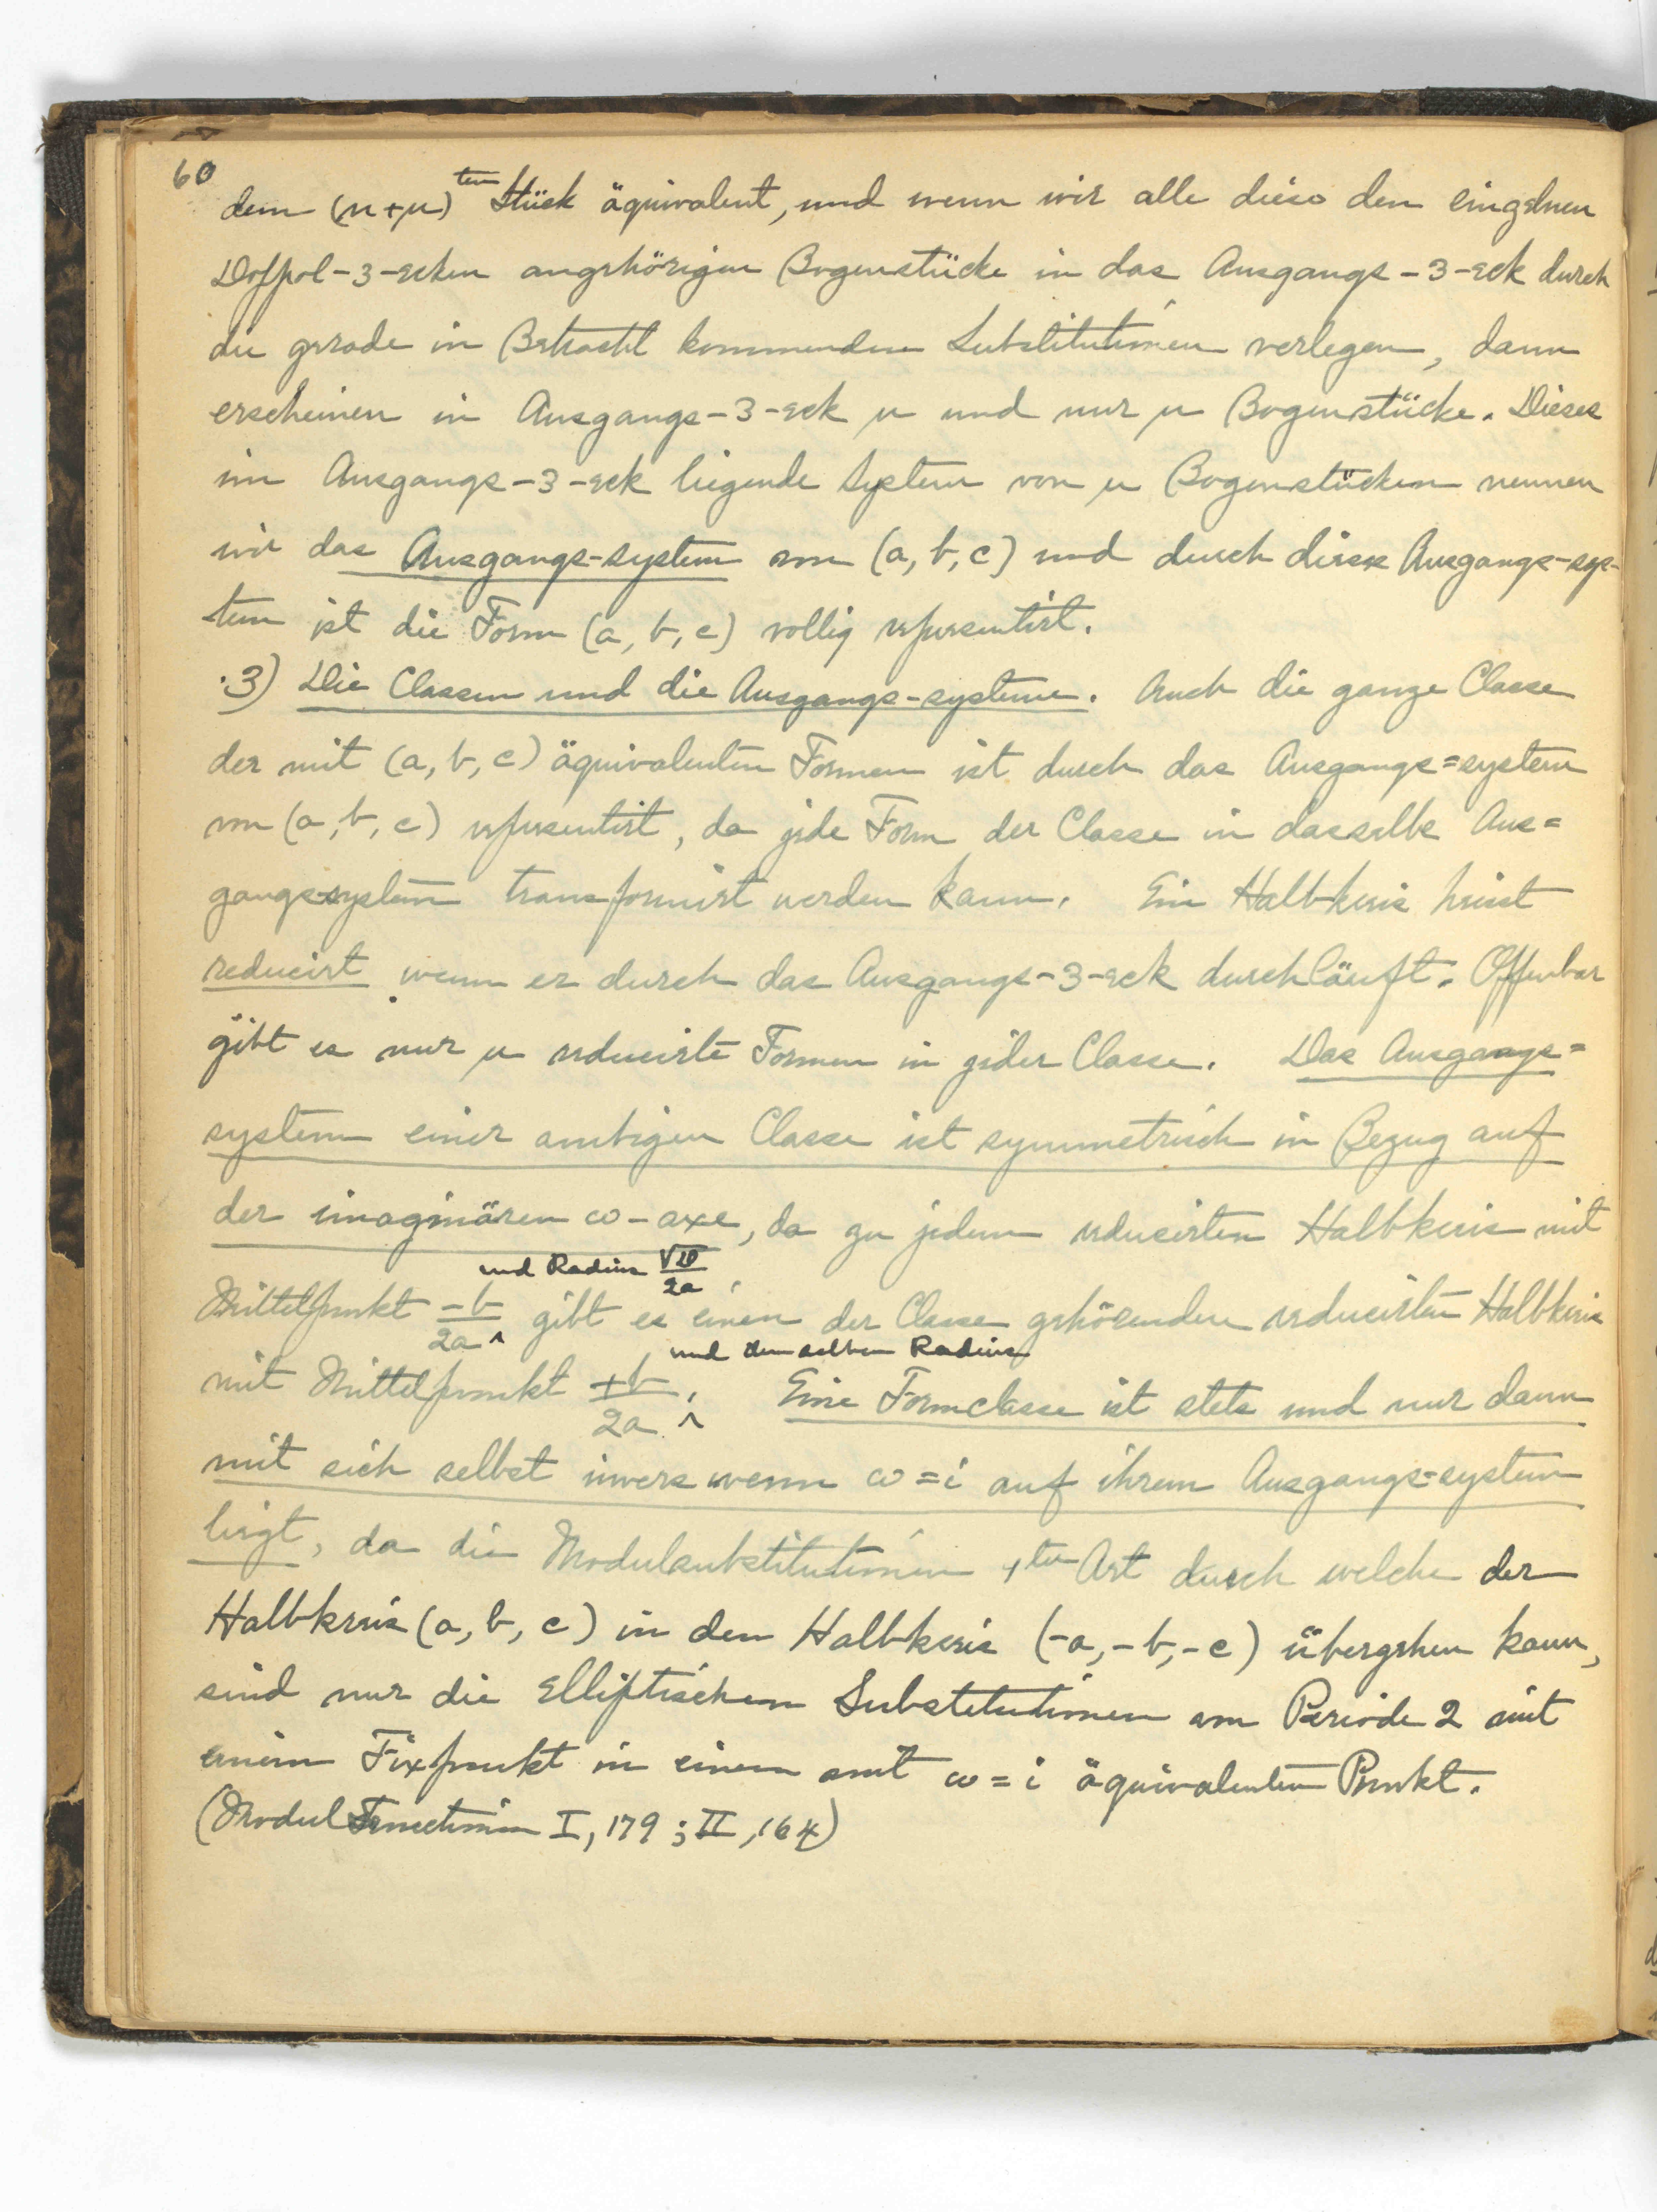 60
dem (n+μ)ten Stück äquivalent, und wenn wir alle diese den einzelnen
Doppel-3-ecken angehörigen Bogenstücke in das Ausgangs-3-eck durch
die gerade in Betracht kommenden Substitutionen verlegen, dann
erscheinen in Ausgangs-3-eck μ und nur μ Bogenstücke. Dieses
im Ausgangs-3-eck liegende System von μ Bogenstücken nennen
wir das Ausgangs-system von (a, b, c) und durch dieses Ausgangs-sys-
tem ist die Form (a, b, c) vollig representirt.
3) Die Classen und die Ausgangs-systeme. Auch die ganze Classe
der mit (a, b, c) äquivalenten Formen ist durch das Ausgangs=system
von (a, b, c) representirt, da jede Form der Classe in dasselbe Aus=
gangs-system transformirt werden kann. Ein Halbkreis heisst
reducirt wenn er durch das Ausgangs-3-eck durchläuft. Offenbar
gibt es nur μ reducirte Formen in jeder Classe. Das Ausgangs=
system einer ambigen Classe ist symmetrisch in Bezug auf
der imaginären ω-axe, da zu jedem reducirten Halbkreis mit
und Radius √D/2a
Mittelpunkt -b/2a ^ gibt es einen der Classe gehörenden reducirten Halbkreis
und demselben Radius
mit Mittelpunkt +b/2a ^. Eine Formclasse ist stets und nur dann
mit sich selbst invers wenn ω=i auf ihrem Ausgangs=system
liegt, da die Modulsubstitutionen 1ter Art durch welche der
Halbkreis (a, b, c) in den Halbkreis (-a, -b, -c) übergehen kann,
sind nur die Elliptischen Substitutionen von Periode 2 mit
einem Fixpunkt in einem mit ω=i äquivalenten Punkt.
(Modul Functionen I, 179; II, 164)